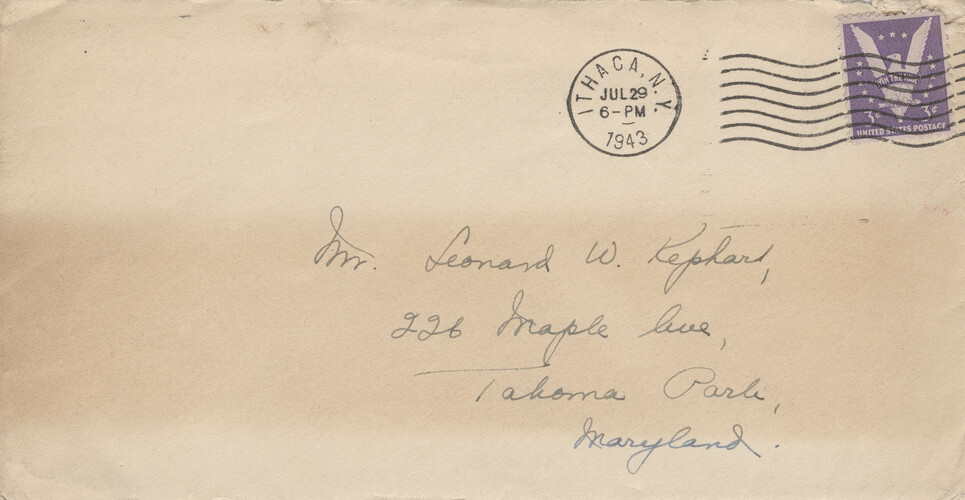 ITHACA, N.Y.
JUL 29
6-PM
1943
WIN THE WAR
3¢ 3¢
UNITED STATES POSTAGE
Mr. Leonard W. Kephart,
226 Maple Ave,
Takoma Park,
Maryland.